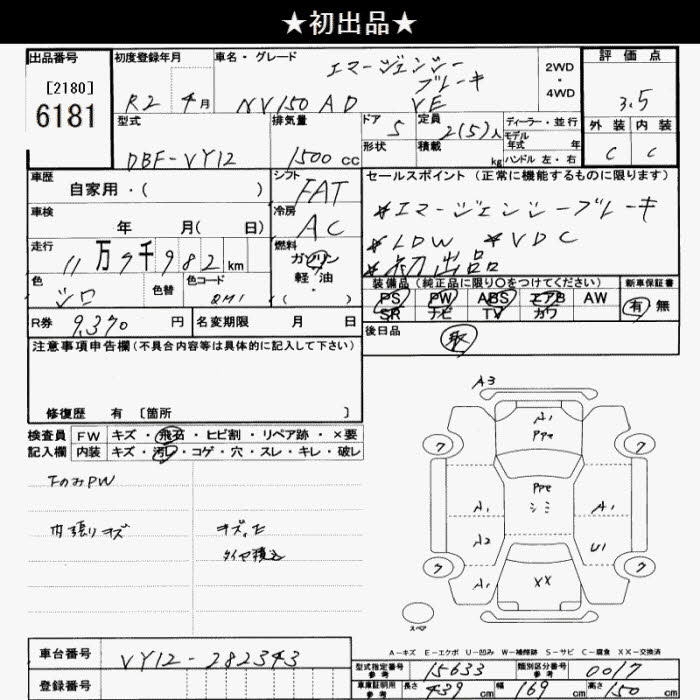 ★初出品★
出品番号
[2180]
6181
初度登録年月
R2 4月
車名・グレード
エマージェンシー
ブレーキ
NV150 AD VE
2WD
・
4WD
評価点
3.5
外装 内装
C C
型式
DBF-VY12
排気量
1500 cc
ドア 5
形状
定員
2(5)人
積載 kg
ディーラー・並行
モデル年式 年
ハンドル 左・右
車歴
自家用・( )
シフト
FAT
車検
年 月( 日)
冷房
AC
走行
11万7千982km
燃料
ガソリン
軽・油
・( )
色
シロ
色替
色コード
QM1
R券 9,370 円
名変期限 月 日
セールスポイント (正常に機能するものに限ります)
*エマージェンシーブレーキ
*LDW *VDC
*初出品
装備品 (純正品に限り○をつけてください)
新車保証書
PS PW ABS エアB AW
SR ナビ TV カワ
有 無
後日品
注意事項申告欄 (不具合内容等は具体的に記入して下さい)
修復歴 有 [箇所 ]
検査員
記入欄
FW キズ・飛石・ヒビ割・リペア跡・×要
内装 キズ・汚レ・コゲ・穴・スレ・キレ・破レ
下のみPW
内張りキズ
キズ.ヒ
タイヤ積込
A3
A1
PPキ
ワ ワ
PPキ
シミ
A1 A1
A2 U1
ワ ワ
A1 XX
スペア
A-キズ E-エクボ U-凹み W-補修跡 S-サビ C-腐食 XX-交換済
車台番号
VY12-282343
登録番号
型式指定番号 参考 15633
類別区分番号 参考 0017
車庫証明用 参考 長さ 439 cm 幅 169 cm 高さ 150 cm